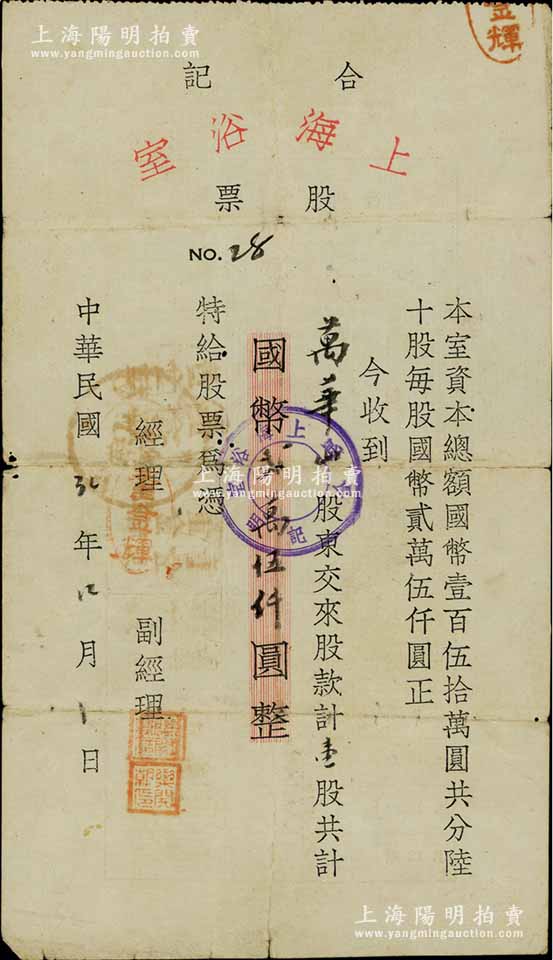 上海陽明拍賣
www.yangmingauction.com
金輝
合記
上海浴室
股票
NO. 28
本室資本總額國幣壹百伍拾萬圓共分陸
十股每股國幣貳萬伍仟圓正
今收到
萬華山股東交來股款計壹股共計
國幣貳萬伍仟圓整
特給股票爲憑
經理 金輝
副經理
中華民國 年 月 日
上海陽明拍賣
www.yangmingauction.com
上海陽明拍賣
www.yangmingauction.com